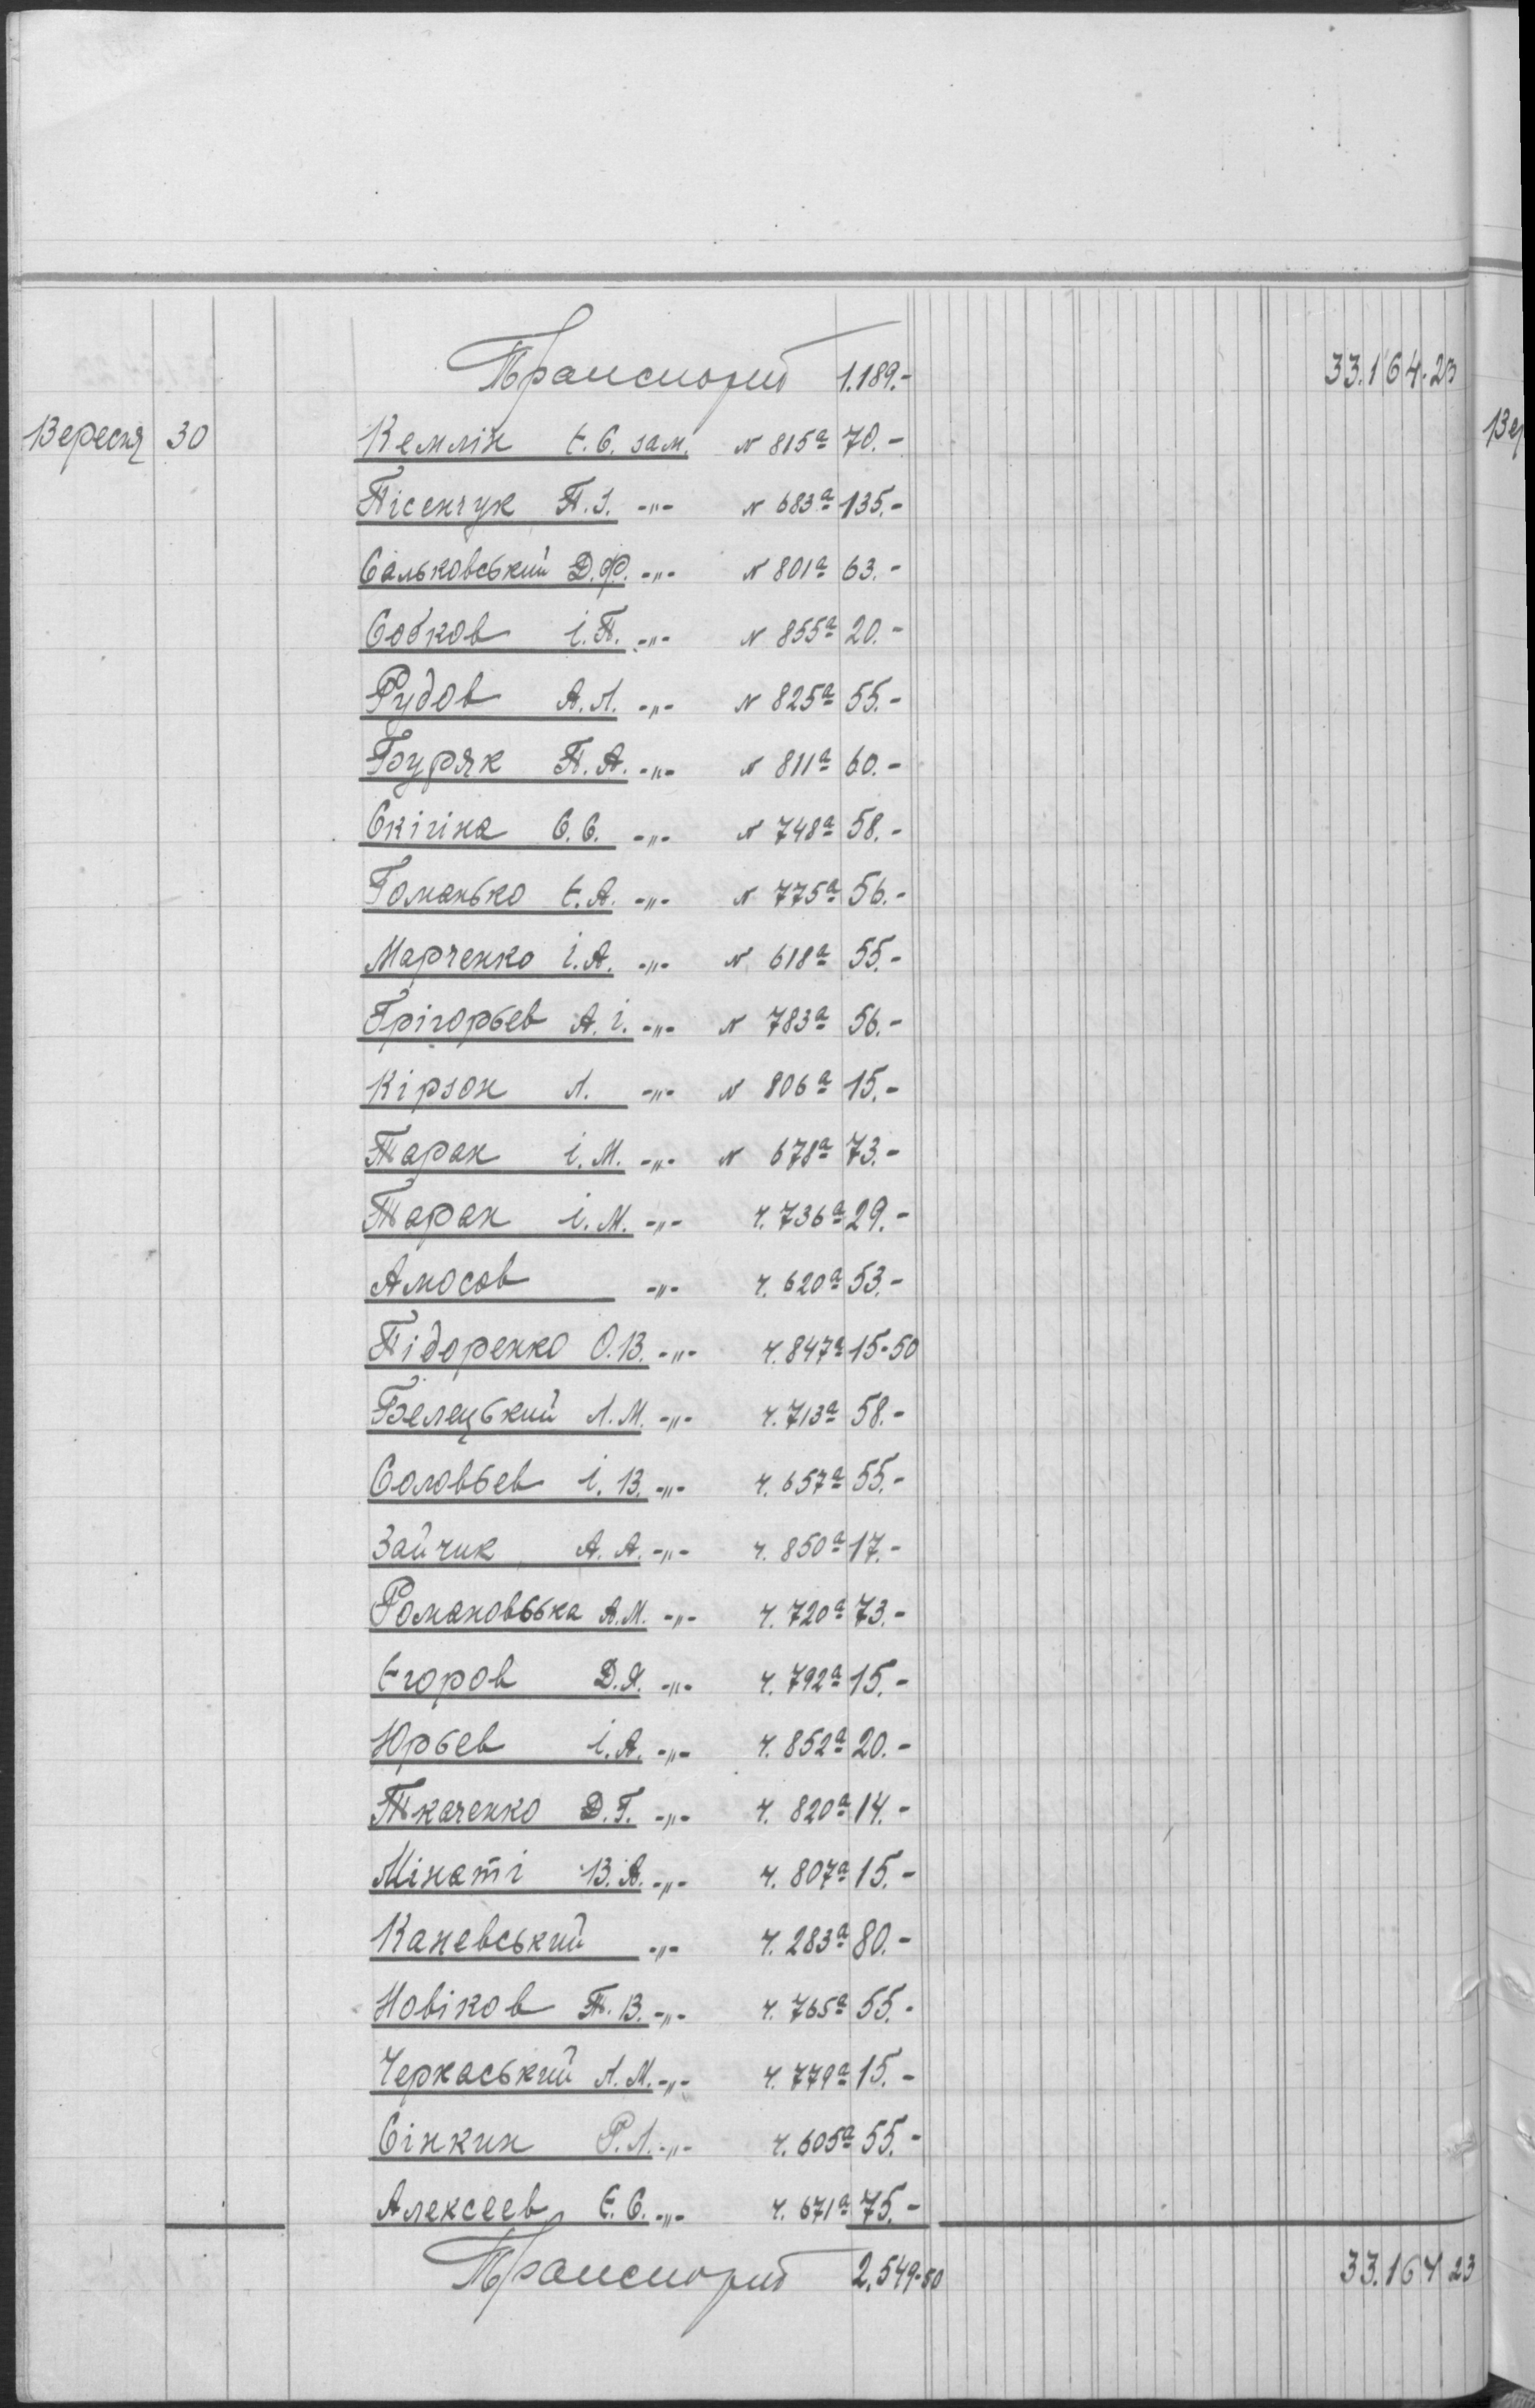 Транспорт 1.189.- 33.164.23
Вересня 30 Кемлін Є.С. зам. N 815а 70.-
Пісенчук П.І. -"- N 683а 135.-
Сальковський Д.Ф. -"- N 801а 63.-
Собков і.П. -"- N 855а 20.-
Рудов А.Л. -"- N 825а 55.-
Буряк П.А. -"- N 811а 60.-
Скігіна С.С. -"- N 748а 58.-
Гоманько Є.А. -"- N 775а 56.-
Марченко і.А. -"- N 618а 55.-
Грігорьев А.і. -"- N 783а 56.-
Кірзон Л. -"- N 806а 15.-
Таран і.М. -"- N 678а 73.-
Таран і.М. -"- ч. 736а 29.-
Амосов -"- ч. 620а 53.-
Підоренко О.В. -"- ч. 847а 15-50
Белецький Л.М. -"- ч. 713а 58.-
Соловьев і.В. -"- ч. 657а 55.-
Зайчик А.А. -"- ч. 850а 17.-
Романовська А.М. -"- ч. 720а 73.-
Єгоров Д.Я. -"- ч. 792а 15.-
Юрьев і.А. -"- ч. 852а 20.-
Ткаченко Д.Г. -"- ч. 820а 14.-
Мінаті В.А. -"- ч. 807а 15.-
Каневський -"- ч. 283а 80.-
Новіков Т.В. -"- ч. 765а 55.-
Черкаський Л.М. -"- ч. 779а 15.-
Сінкин Р.Л. -"- ч. 605а 55.-
Алексеев Є.С. -"- ч. 671а 75.-
Транспорт 2.549-50 33.164 23